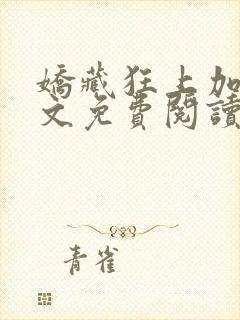 嬌藏狂上加
文免費閱讀
青雀